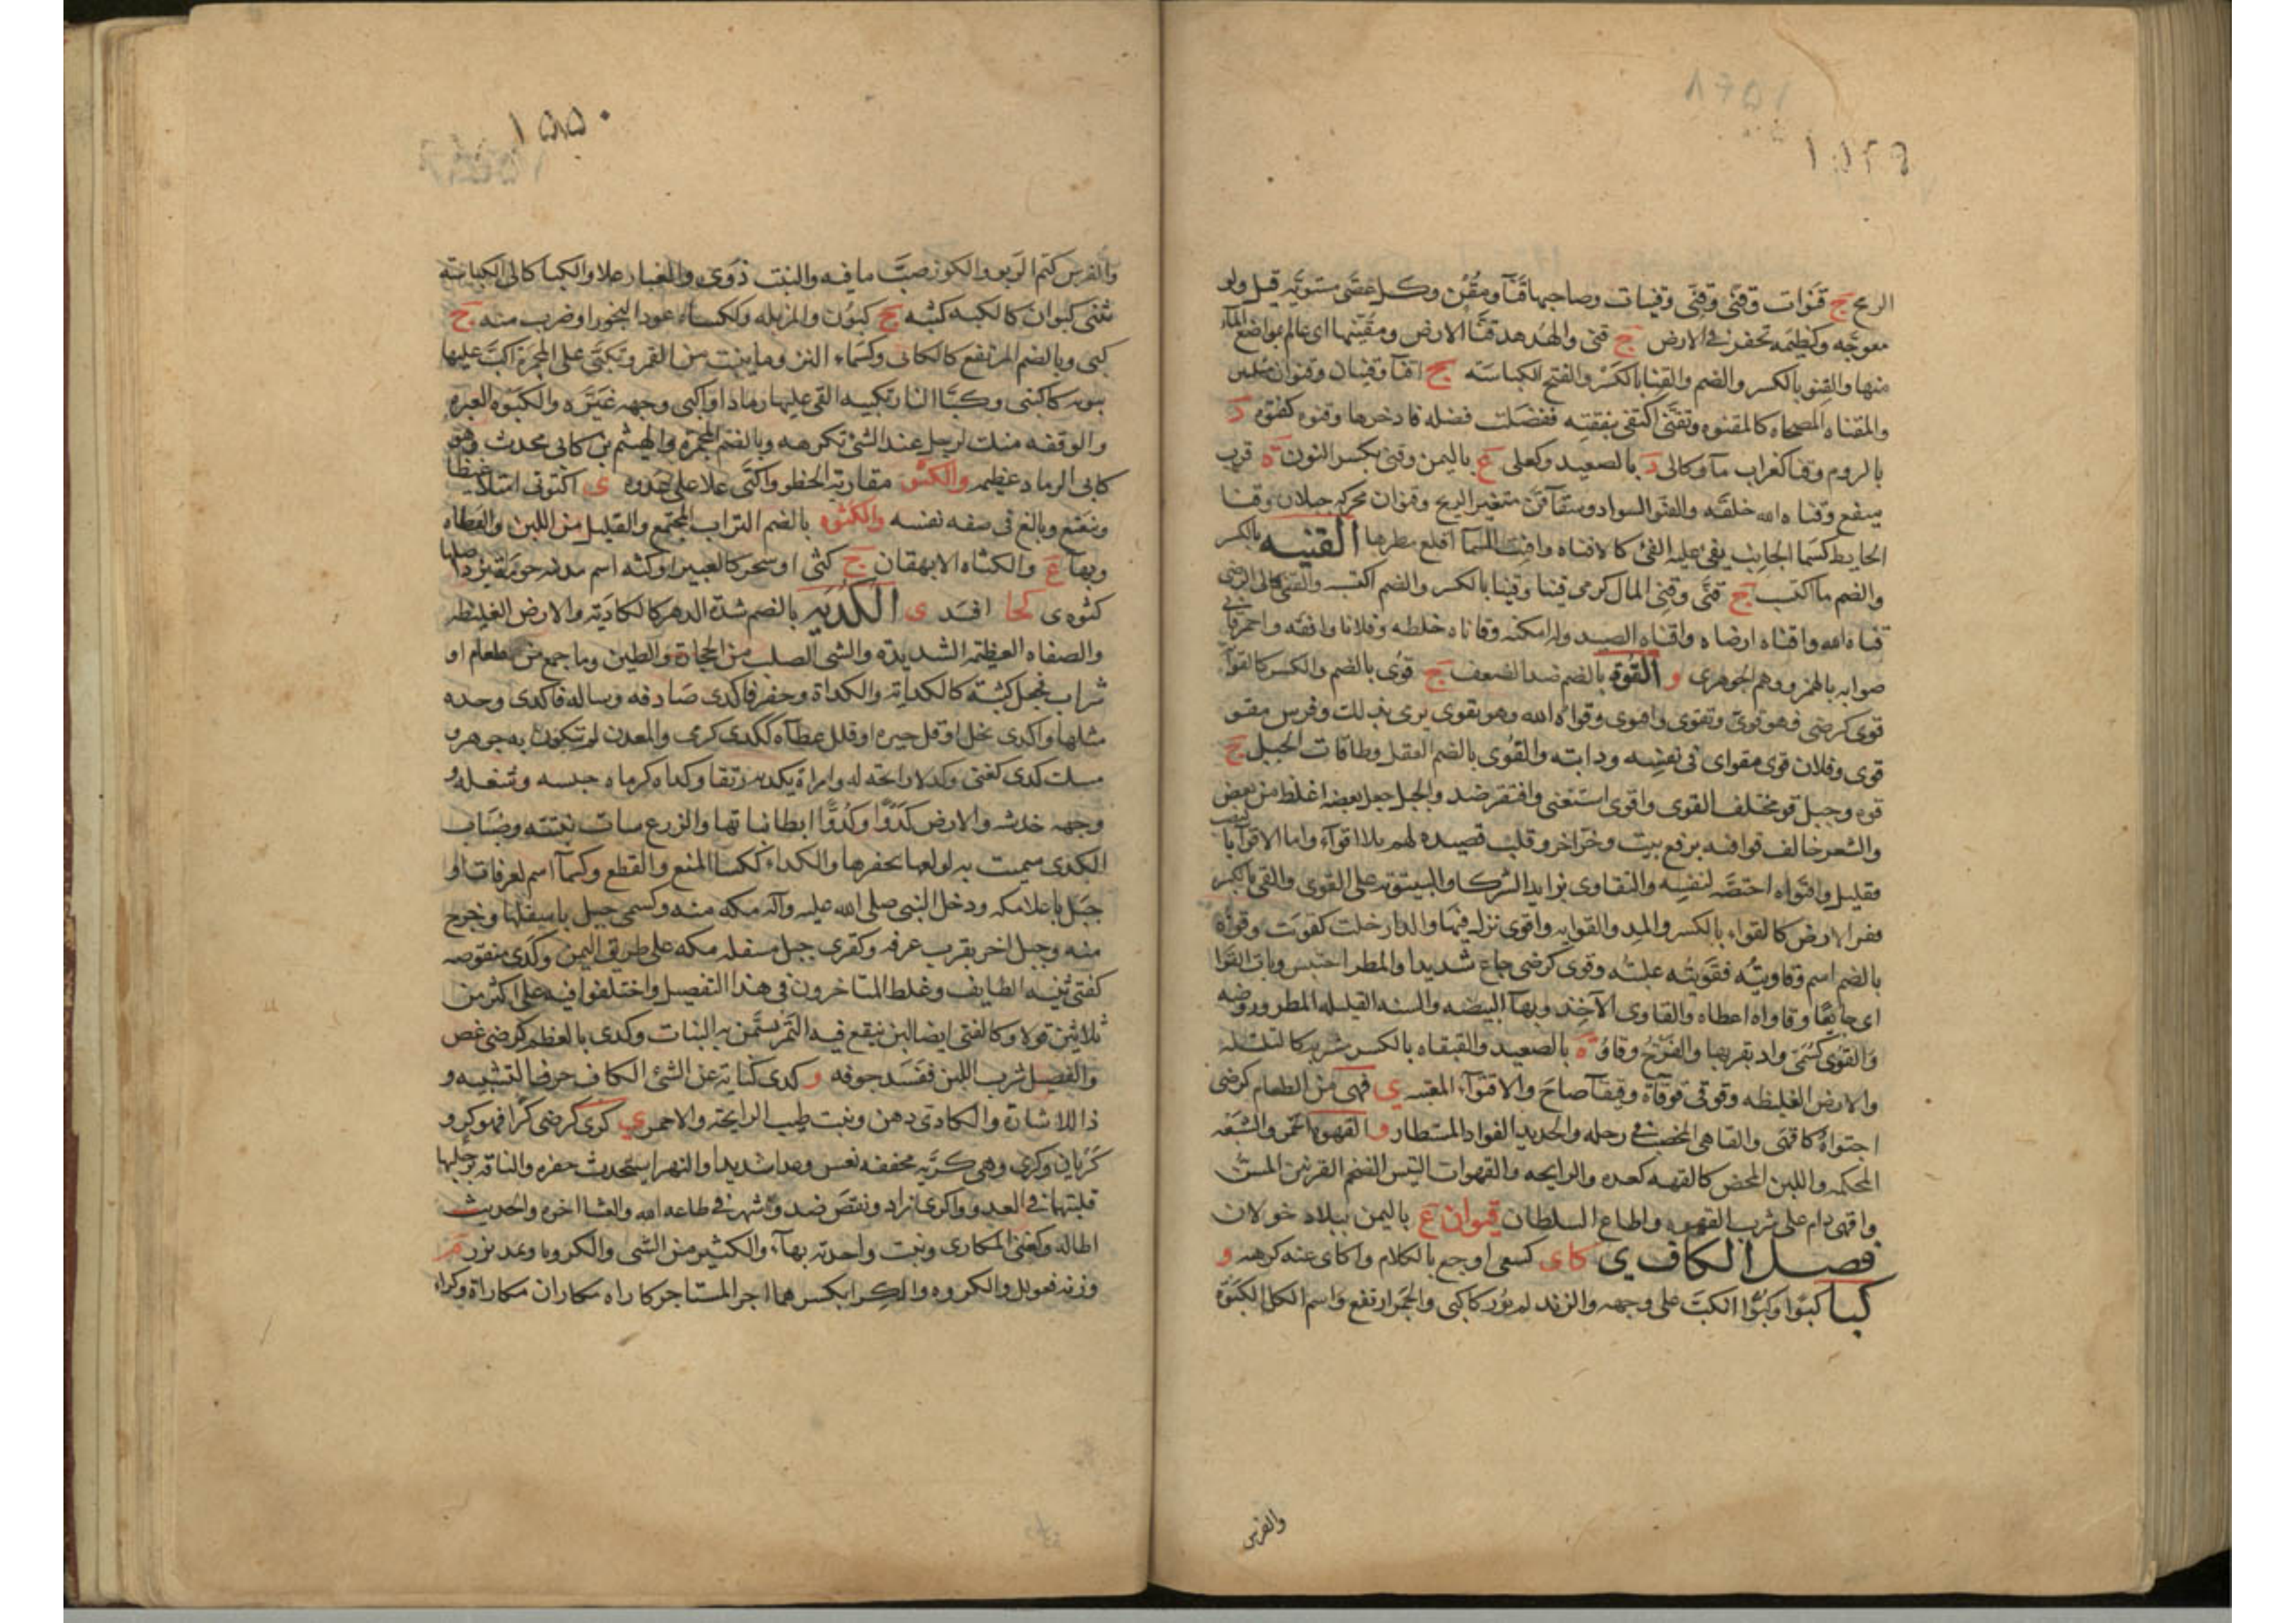 الرمح ج قنوات وقنى وقنى وقنيات وصاحبها قناء ومقن وكل عصى مستويه قيل ولو
معوجه وكظيمه تحفر فى الارض ج قنى والهدهد قناء الارض ومقنيها اى عالم بمواضع الماء
منها والقنو بالكسر والضم والقنا بالكسر والفتح الكباسه ج اقناء وقنيان وقنوان مثلين
والمقناه المضحاه كالمقنوه وتقنى اكتفى بنفقته ففضلت فضله فادخرها وقنوه كفتوه د
بالروم وقنا كغراب ماء وكالى د بالصعيد وكعلى ع باليمن وقنى بكسر النون ه قرب
وقناه الله خلقه والقنو السواد وسقاء قن متغير الريح وقنوان محركه جبلان وقنا
الحايط كسما الجانب يفئ عليه الفئ كالاقناه واقنت السما اقلع مطرها القنيه بالكسر
والضم ما اكتسب ج قنى وقنى المال كرمى قنيا وقنيانا بالكسر والضم اكتسبه والقنى كالى الرضى
قناه الله واقناه ارضاه واقناه الصيد وله امكنه وقاناه خلطه وفلانا وافقه واحمر قانى
صوابه بالهمز ووهم الجوهرى و القوة بالضم ضد الضعف ج قوى بالضم والكسر كالقوآ
قوى كرضى فهو قوى وتقوى واقوى وقواه الله وهو يقوى يرمى بذلك وفرس مقو
قوى وفلان قوى مقو اى فى نفسه ودابته والقوى بالضم العقل وطاقات الحبل ج
قوه وحبل قو مختلف القوى واقوى استغنى وافتقر ضد والحبل جعل بعضه اغلظ من بعض
والشعر خالف قوافيه برفع بيت وجر آخر وقلت قصيده لهم بلا اقوآء واما الاقوآ بالنصب
فقليل واقتواه اختصه لنفسه والتقاوى تزايد الشركا والبيتوته على القوى والقى بالكسر
قفر الارض كالقواء بالكسر والمد والقوايه واقوى نزل فيها والدار خلت كقويت وقوه
بالضم اسم وقاويته فقويته غلبته وقوى كرضى جاع شديدا والمطر احتبس وبات القوا
اى جايعا وقاواه اعطاه والقاوى الآخذ وبهآ البيضه والسنه القليله المطر وروضه
والقوى كسمى واد بقربها والفرخ وقاو ه بالصعيد والقيقاه بالكسر مشربه كالتلتله
والارض الغليظه وقوقى قوقاة وقيقآ صاح والاقتوآء المعتبه ى قهى من الطعام كرضى
اجتواه كاقهى والقاهى المخصب فى رحله والحديد الفواد المستطار و القهوه الخمر والشبعه
المحكمه واللبن المحض كالقهه كعده والرايحه والقهوات التيس الضخم القرنين المسن
واقهى دام على شرب القهوه واطاع السلطان قيوان ع باليمن ببلاد خولان
فصل الكاف ى كاى كسعى اوجع بالكلام واكاى عنه كرهه و
كبا كبوا وكبوا انكب على وجهه والزند لم يور كاكبى والجمر ارتفع واسم الكل الكبوة
والفرس
والفرس كتم الربو والكوز صب ما فيه والنبت ذوى والغبار علا والكبا كالى الكباسه
تثنى كبوان كالكبه كثبه ج كبون والمزبله وككساء عود البخور او ضرب منه ج
كبى وبالضم المرتفع كالكابى وكسماء النز وما ينبت من القمر وتكبى على المجمرة اكب عليها
بثوبه كاكتبى وكبا النار تكبيه القى عليها رمادا واكبى وجهه غيره والكبوه العبره
والوقفه منك لرجل عند الشئ تكرهه وبالضم المجمرة والهيثم بن كابى محدث وهو
كابى الرماد عظيمه والكتو مقاربة الخطو واكتى علا على عدوه ى اكتوتى امتلا غيظا
وتعتع وبالغ فى صفه نفسه والكثوه بالضم التراب المجتمع والقليل من اللبن والقطاه
وبها ع والكثاه الايهقان ج كثى او شجر كالغبيرا وكثه اسم مدينه حومه يزد اصلها
كثوه ى كحا افسد ى الكديه بالضم شدة الدهر كالكادية والارض الغليظه
والصفاه العظيمه الشديدة والشى الصلب من الحجارة والطين وما جمع من طعام او
شراب فجعل كثبة كالكداية والكداة وحفر فاكدى صادفه وساله فاكدى وجده
مثلها واكدى بخل او قل خيره او قلل عطاه ككدى كرمى والمعدن لم يتكون به جوهر و
مسك كدى كغنى وكد لا رايحه له وامراة يكديه رتقا وكداه كرماه حبسه وشغله و
وجهه خدشه والارض كدوا وكدوا ابطا نباتها والزرع سات نبتته وضباب
الكدى سميت به لولعها بحفرها والكداء ككسا المنع والقطع وكسمآ اسم لعرفات او
جبل باعلا مكه ودخل النبى صلى الله عليه وآله مكه منه وكسمى جبل باسفلها وخرج
منه وجبل اخر بقرب عرفه وكقرى جبل مسفله مكه على طريق اليمن وكدى منقوصه
كفتى ثنيه الطايف وغلط المتاخرون فى هذا التفصيل واختلفوا فيه على اكثر من
ثلاثين قولا وكالفتى ايضا لبن ينقع فيه التمر تسمن به البنات وكدى بالعظم كرضى غص
والفصيل شرب اللبن ففسد جوفه و كدى كناية عن الشئ الكاف حرف التشبيه و
ذا للاشارة والكادى دهن ونبت طيب الرايحة والاحمر ى كرى كرضى كرا فهو كر و
كريان وكرى وهى كرية مخففه نعس وعدا شديدا والنهر استحدث حفره والناقه برجليها
قلبتهما فى العدو واكرى زاد ونقص ضد وسهر فى طاعه الله والعشا اخره والحديث
اطاله وكغنى المكارى ونبت واحدته بهآء والكثير من الشى والكرويا وتمد بزر م
وزنه فعولل والكروه والكرا بكسرهما اجر المستاجر كاراه مكاران مكاراة وكراء